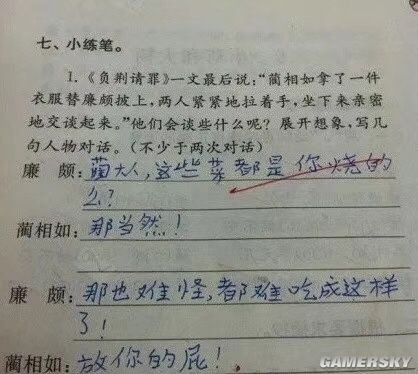 七、小练笔。
1.《负荆请罪》一文最后说:“蔺相如拿了一件
衣服替廉颇披上,两人紧紧地拉着手,坐下来亲密
地交谈起来。”他们会谈些什么呢?展开想象,写几
句人物对话。(不少于两次对话)
廉 颇:蔺大人,这些菜都是你烧的
么?
蔺相如:那当然!
廉 颇:那也难怪,都难吃成这样
了!
蔺相如:放你的屁!
GAMERSKY